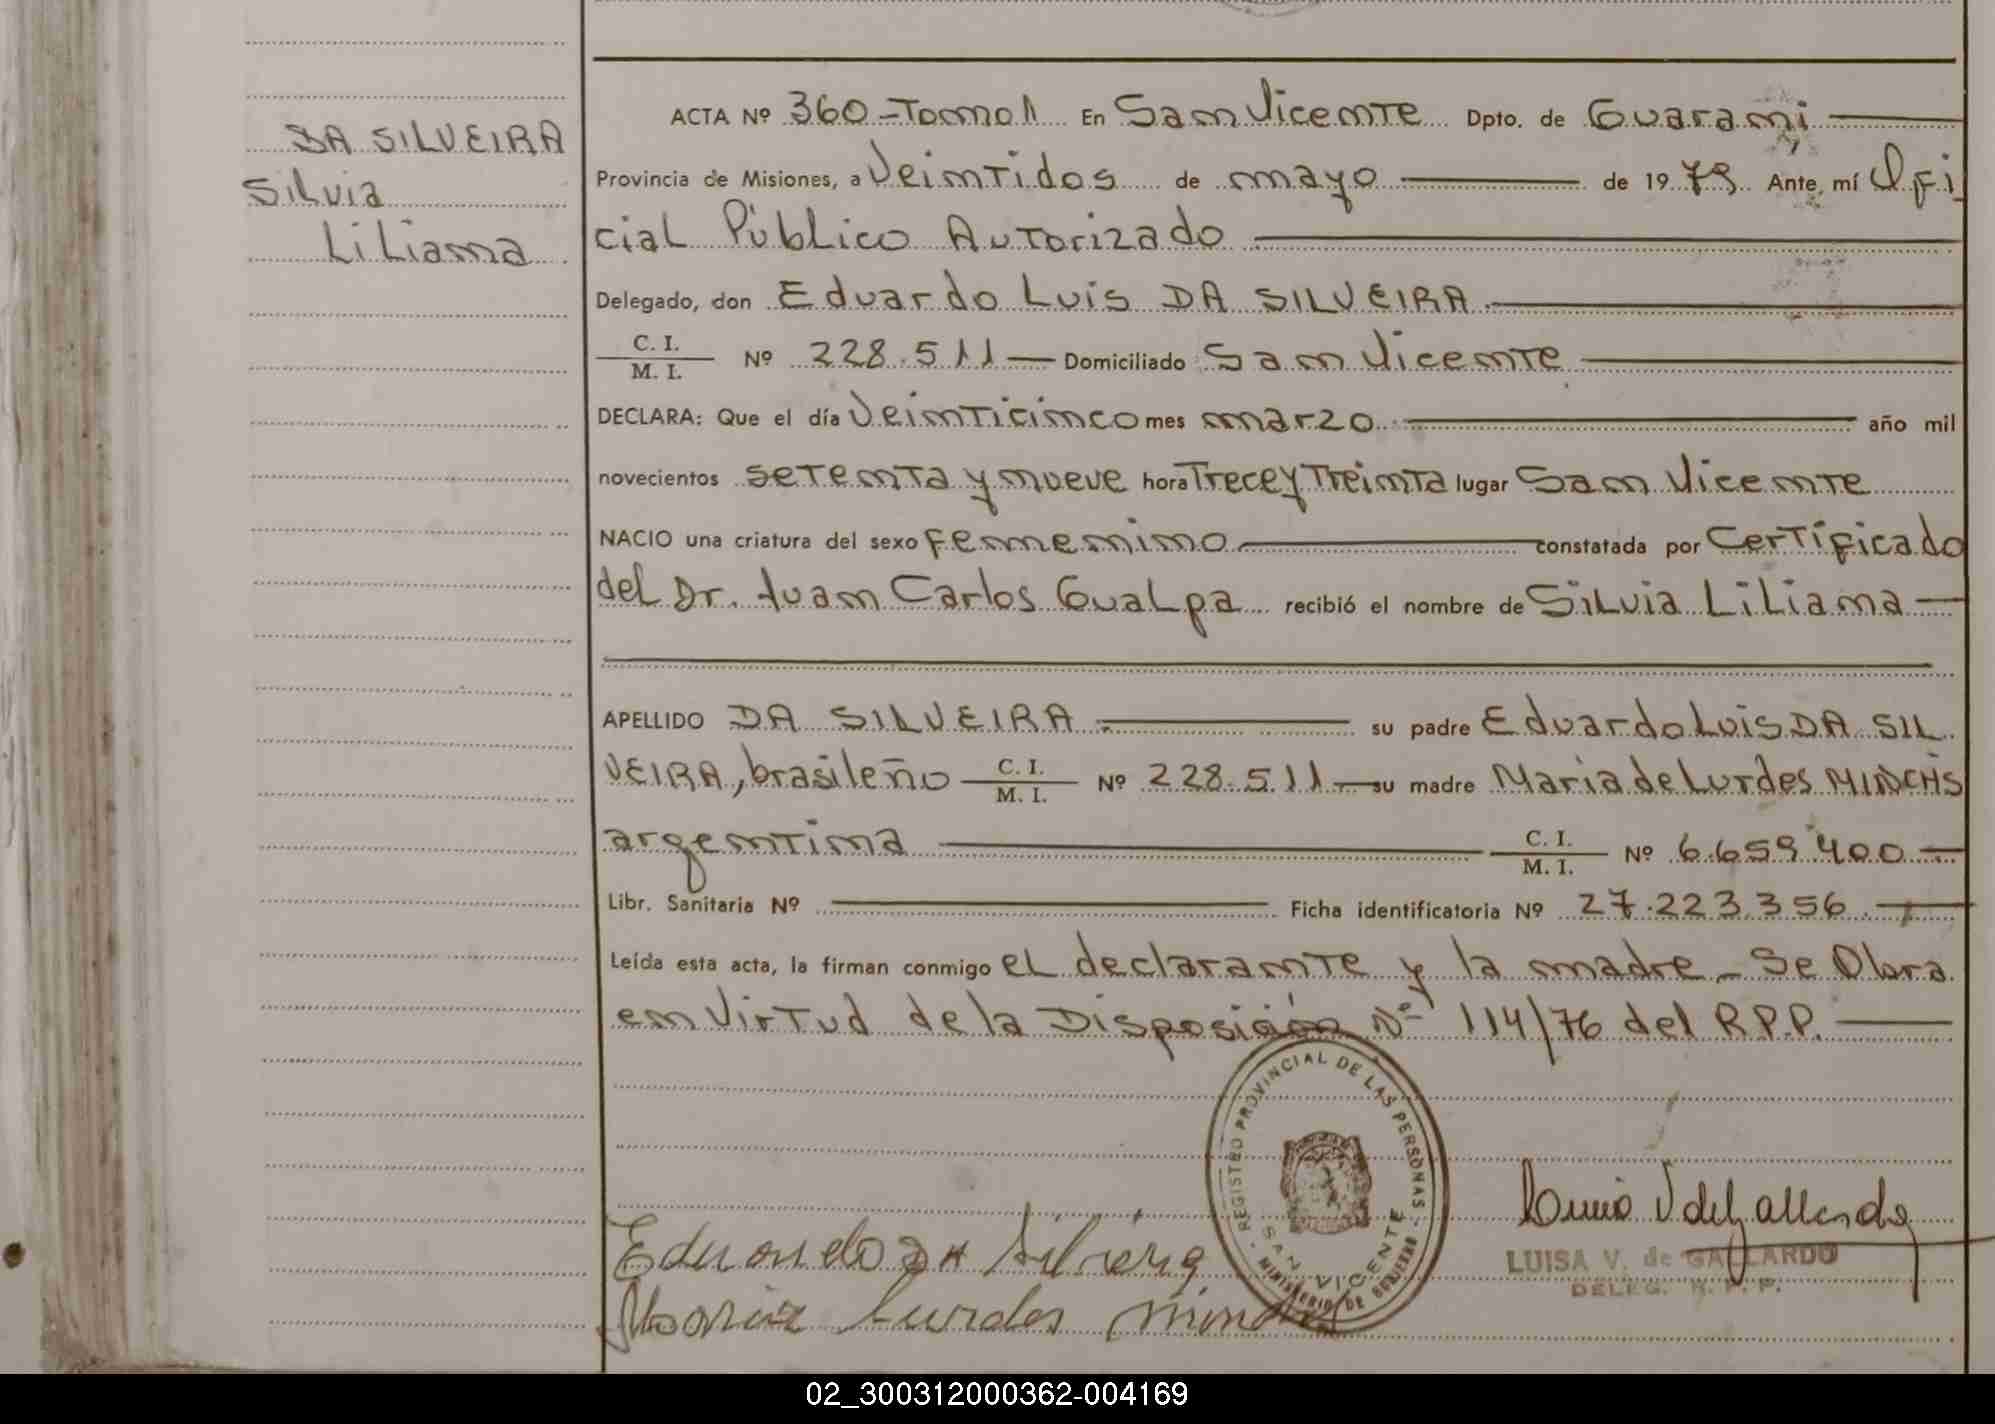 DA SILVEIRA
Silvia
Liliana
ACTA Nº 360-Tomo II En San Vicente Dpto. de Guaraní
Provincia de Misiones, a Veintidos de mayo de 1979 Ante, mí Ofi
cial Público Autorizado
Delegado, don Eduardo Luis DA SILVEIRA
C. I.
M. I. Nº 228.511 Domiciliado San Vicente
DECLARA: Que el día Veinticinco mes marzo año mil
novecientos setenta y nueve hora Trece y Treinta lugar San Vicente
NACIO una criatura del sexo femenino constatada por Certificado
del Dr. Juan Carlos Gualpa recibió el nombre de Silvia Liliana
APELLIDO DA SILVEIRA su padre Eduardo Luis DA SIL
VEIRA, brasileño C. I. M. I. Nº 228.511 su madre Maria de Lurdes
argentina C. I. M. I. Nº 6.659.400
Libr. Sanitaria Nº Ficha identificatoria Nº 27.223.356
Leída esta acta, la firman conmigo el declarante y la madre - Se Obra
en virtud de la Disposición Nº 114/76 del R.P.P.
REGISTRO PROVINCIAL DE LAS PERSONAS
SAN VICENTE
MINISTERIO DE GOBIERNO
Eduardo Da Silveira
Maria Lurdes
LUISA V. de GALLARDO
DELEG. R. P. P.
02_300312000362-004169